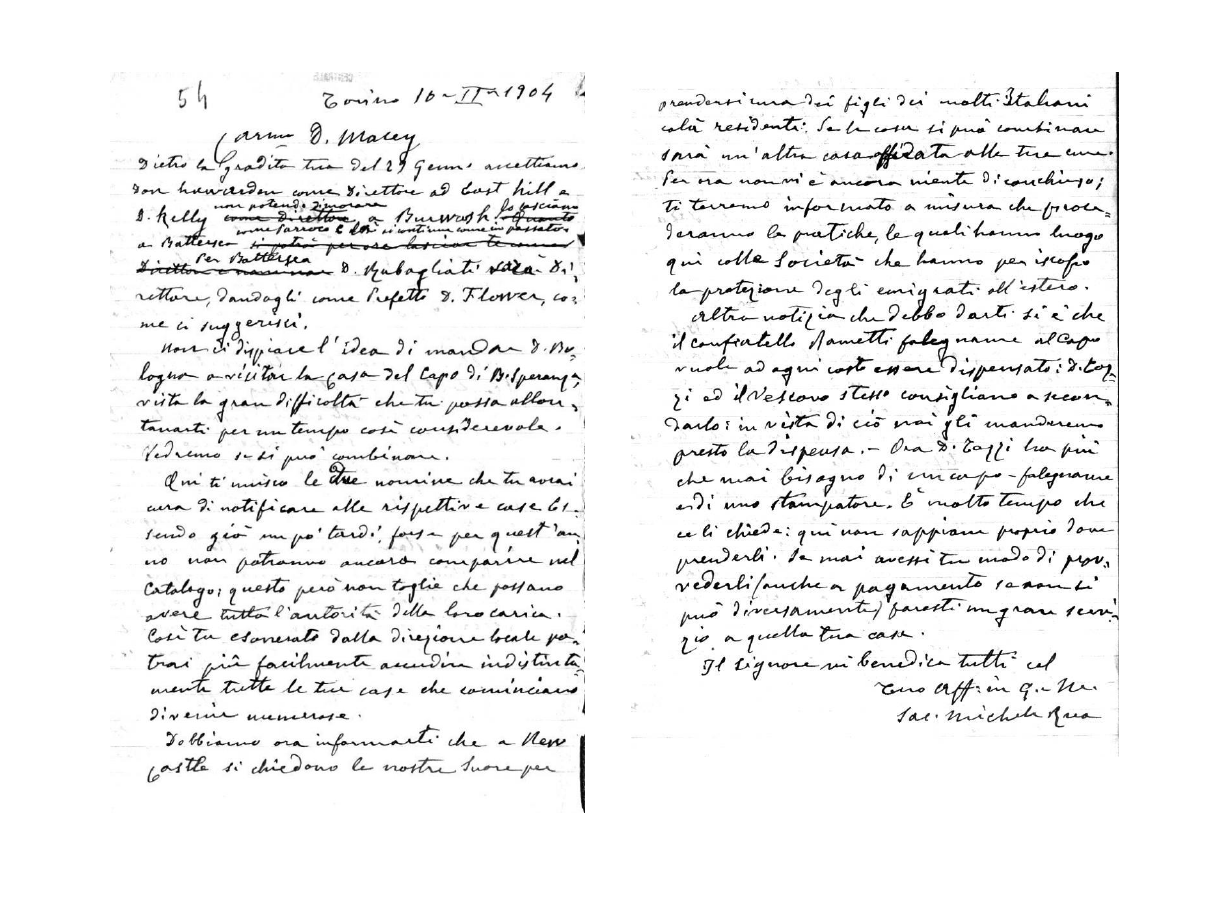 54
Torino 10-II-1904
Car.mo D. Macey
Dietro la gradita tua del 29 Genn. accettiamo
Don hawarden come Direttore ad East hill e
non potendo dimorare lo lasciano
D. Kelly come direttore, a Burwash. Quanto
come Parroco e lui si continue come in passato
a Battersea si potrà per ora lasciar te come
Per Battersea
Direttore e nominar D. Rabagliati sarà Di,
rettore, dandogli come Prefetto D. Flower, co,
me ci suggerisci.
Non ci dispiace l'idea di mandar D. Bo,
logna a visitar la casa del Capo di B. Speranza,
vista la gran difficoltà che tu possa allon,
tanarti per un tempo così considerevole.
Vedremo se si può combinare.
Qui ti unisco le due nomine che tu avrai
cura di notificare alle rispettive case. Es,
sendo già un po' tardi, forse per quest'an,
no non potranno ancora comparire nel
Catalogo; questo però non toglie che possano
avere tutta l'autorità della loro carica.
Così tu esonerato dalla direzione locale po,
trai più facilmente accudire indistinta,
mente tutte le tue case che cominciano
divenir numerose.
Dobbiamo ora informarti che a New
Castle si chiedono le nostre Suore per
prendersi cura dei figli dei molti Italiani
colà residenti. Se la cosa si può combinare
sarà un'altra casa affidata alle tue cure.
Per ora non vi è ancora niente di conchiuso;
ti terremo informato a misura che proce,
deranno le pratiche, le quali hanno luogo
qui colle Società che hanno per iscopo
la protezione degli emigrati all'estero.
Altra notizia che debbo darti si è che
il confratello Rametti falegname al Capo
vuole ad ogni costo essere dispensato: D. Toz,
zi ed il Vescovo stesso consigliano a secon,
darlo: in vista di ciò noi gli manderemo
presto la dispensa. - Ora D. Tozzi ha più
che mai bisogno di un capo-falegname
e di uno stampatore. È molto tempo che
ce li chiede: qui non sappiam proprio dove
prenderli. Se mai avessi tu modo di prov,
vederli (anche a pagamento se non si
può diversamente) faresti un gran servi,
zio a quella tua casa.
Il Signore vi benedica tutti col
Tuo Aff. in G. e M.
Sac. Michele Rua